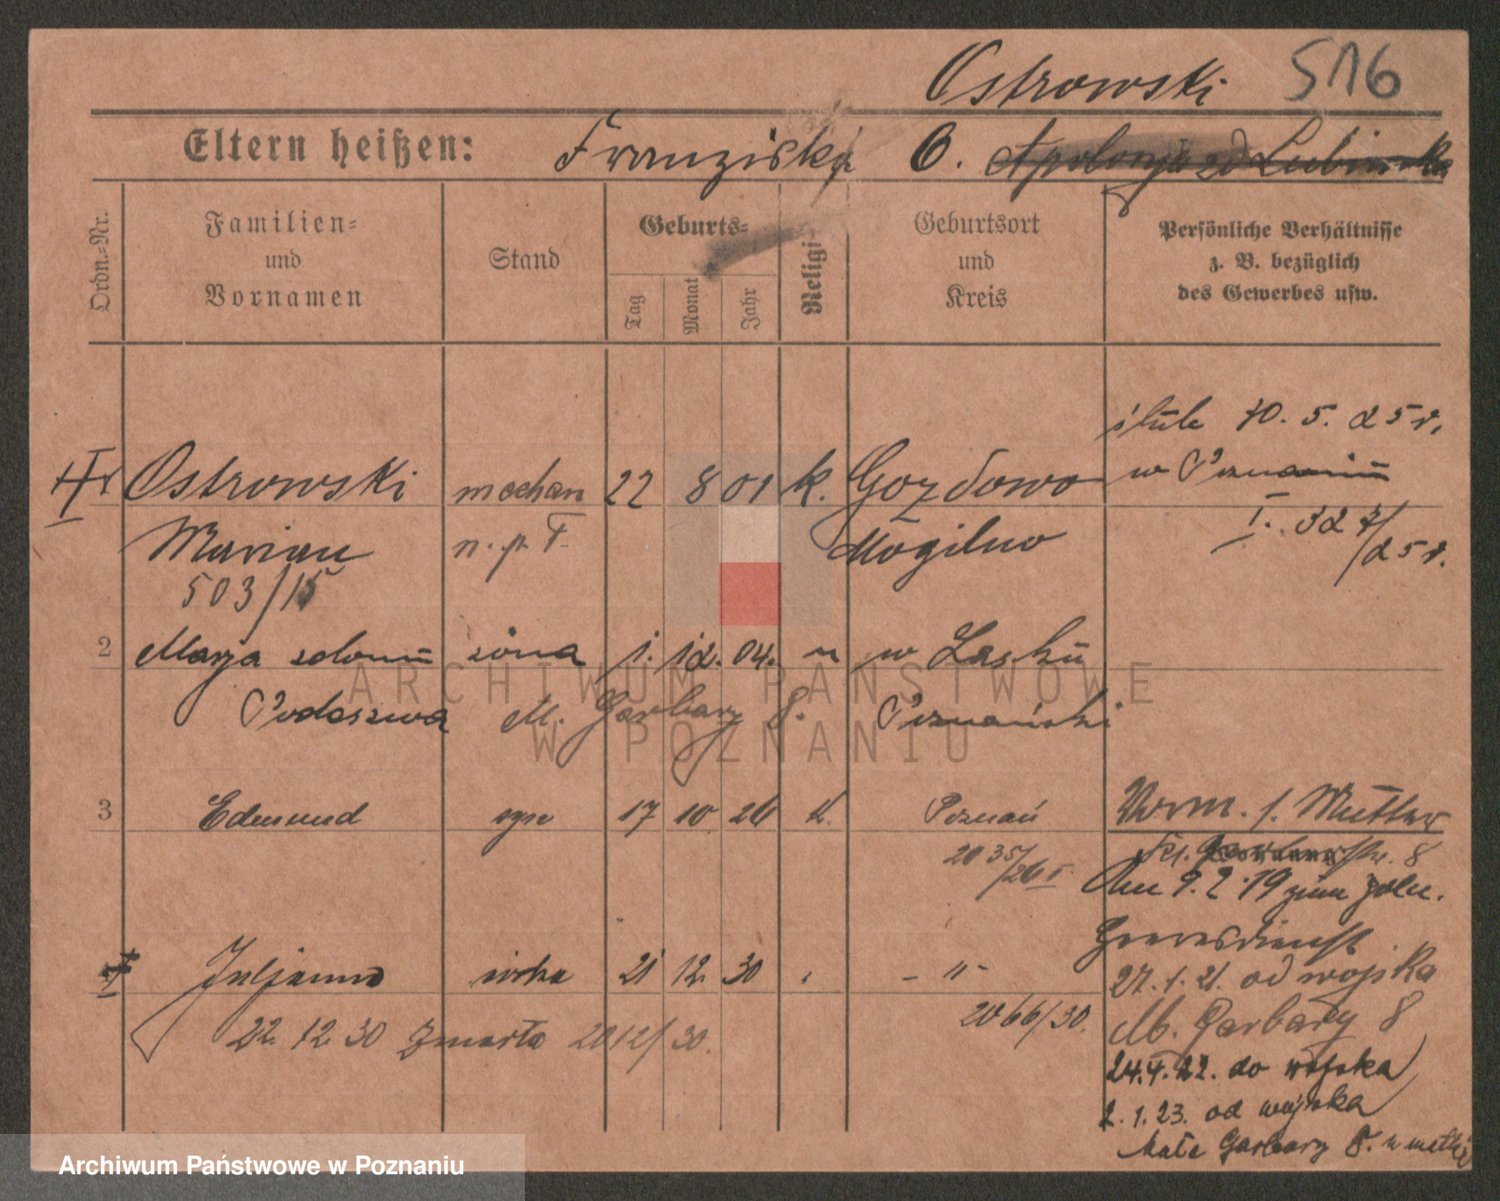 Ostrowski 516
Eltern heißen: Franziska O. Apolonja zd Lubinska
Ordn.-Nr.
Familien-
und
Vornamen
Stand
Geburts-
Tag
Monat
Jahr
Religi
Geburtsort
und
Kreis
Persönliche Verhältnisse
z. B. bezüglich
des Gewerbes usw.
ślub 10. 5. 25 r.
w Poznaniu
I. 327/25 r.
Ostrowski mechan 22 8 01 k. Gozdowo
Marian n. p. T. Mogilno
503/15
2 Marja żona 1. 12. 04. w Lasku
Podeszwa M. Garbary 8. Poznański
3 Edmund syn 17 10 26 k. Poznań
2035/26 I
Vorm. s. Mutter
Kl. 8
Am 9. 2. 19 zum poln.
27. 1. 21. od wojska
M. Garbary 8
24. 4. 22. do wojska
2. 1. 23. od wojska
Małe Garbary 8. u matki
4 Juljanna córka 21 12 30 - " -
2066/30.
22. 12. 30 Zmarła 2012/30.
ARCHIWUM PAŃSTWOWE
W POZNANIU
Archiwum Państwowe w Poznaniu